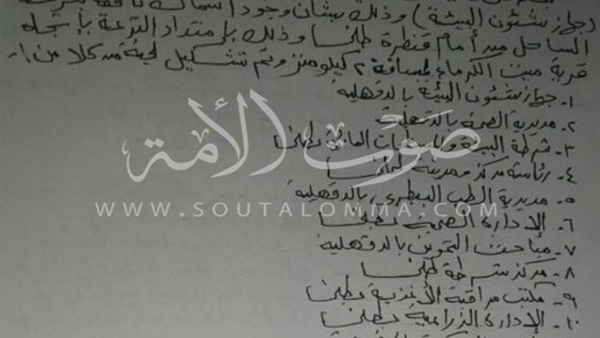 (جهاز شئون البيئة) وذلك بشأن وجود أسماك نافقة بترعة
الساحل من أمام قنطرة طلخا وذلك بامتداد الترعة باتجاه
قرية ميت الكرماء لمسافة ٢ كيلومتر وتم تشكيل لجنة من كلا من :-
١- جهاز شئون البيئة بالدقهلية
٢- مديرية الصحة بالدقهلية
٣- شرطة البيئة والمسطحات المائية بطلخا
صوت الأمة
٤- رئاسة مركز ومدينة طلخا
٥- مديرية الطب البيطري بالدقهلية
WWW.SOUTALOMMA.COM
٦- الإدارة الصحية بطلخا
٧- مباحث التموين بالدقهلية
٨- مركز شرطة طلخا
٩- مكتب مراقبة الأغذية بطلخا
١٠- الإدارة الزراعية بطلخا